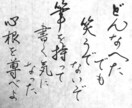 どんなへた
でも
笑うで
ないぞ
筆を持って
書く気に
なった
心根を尊べ